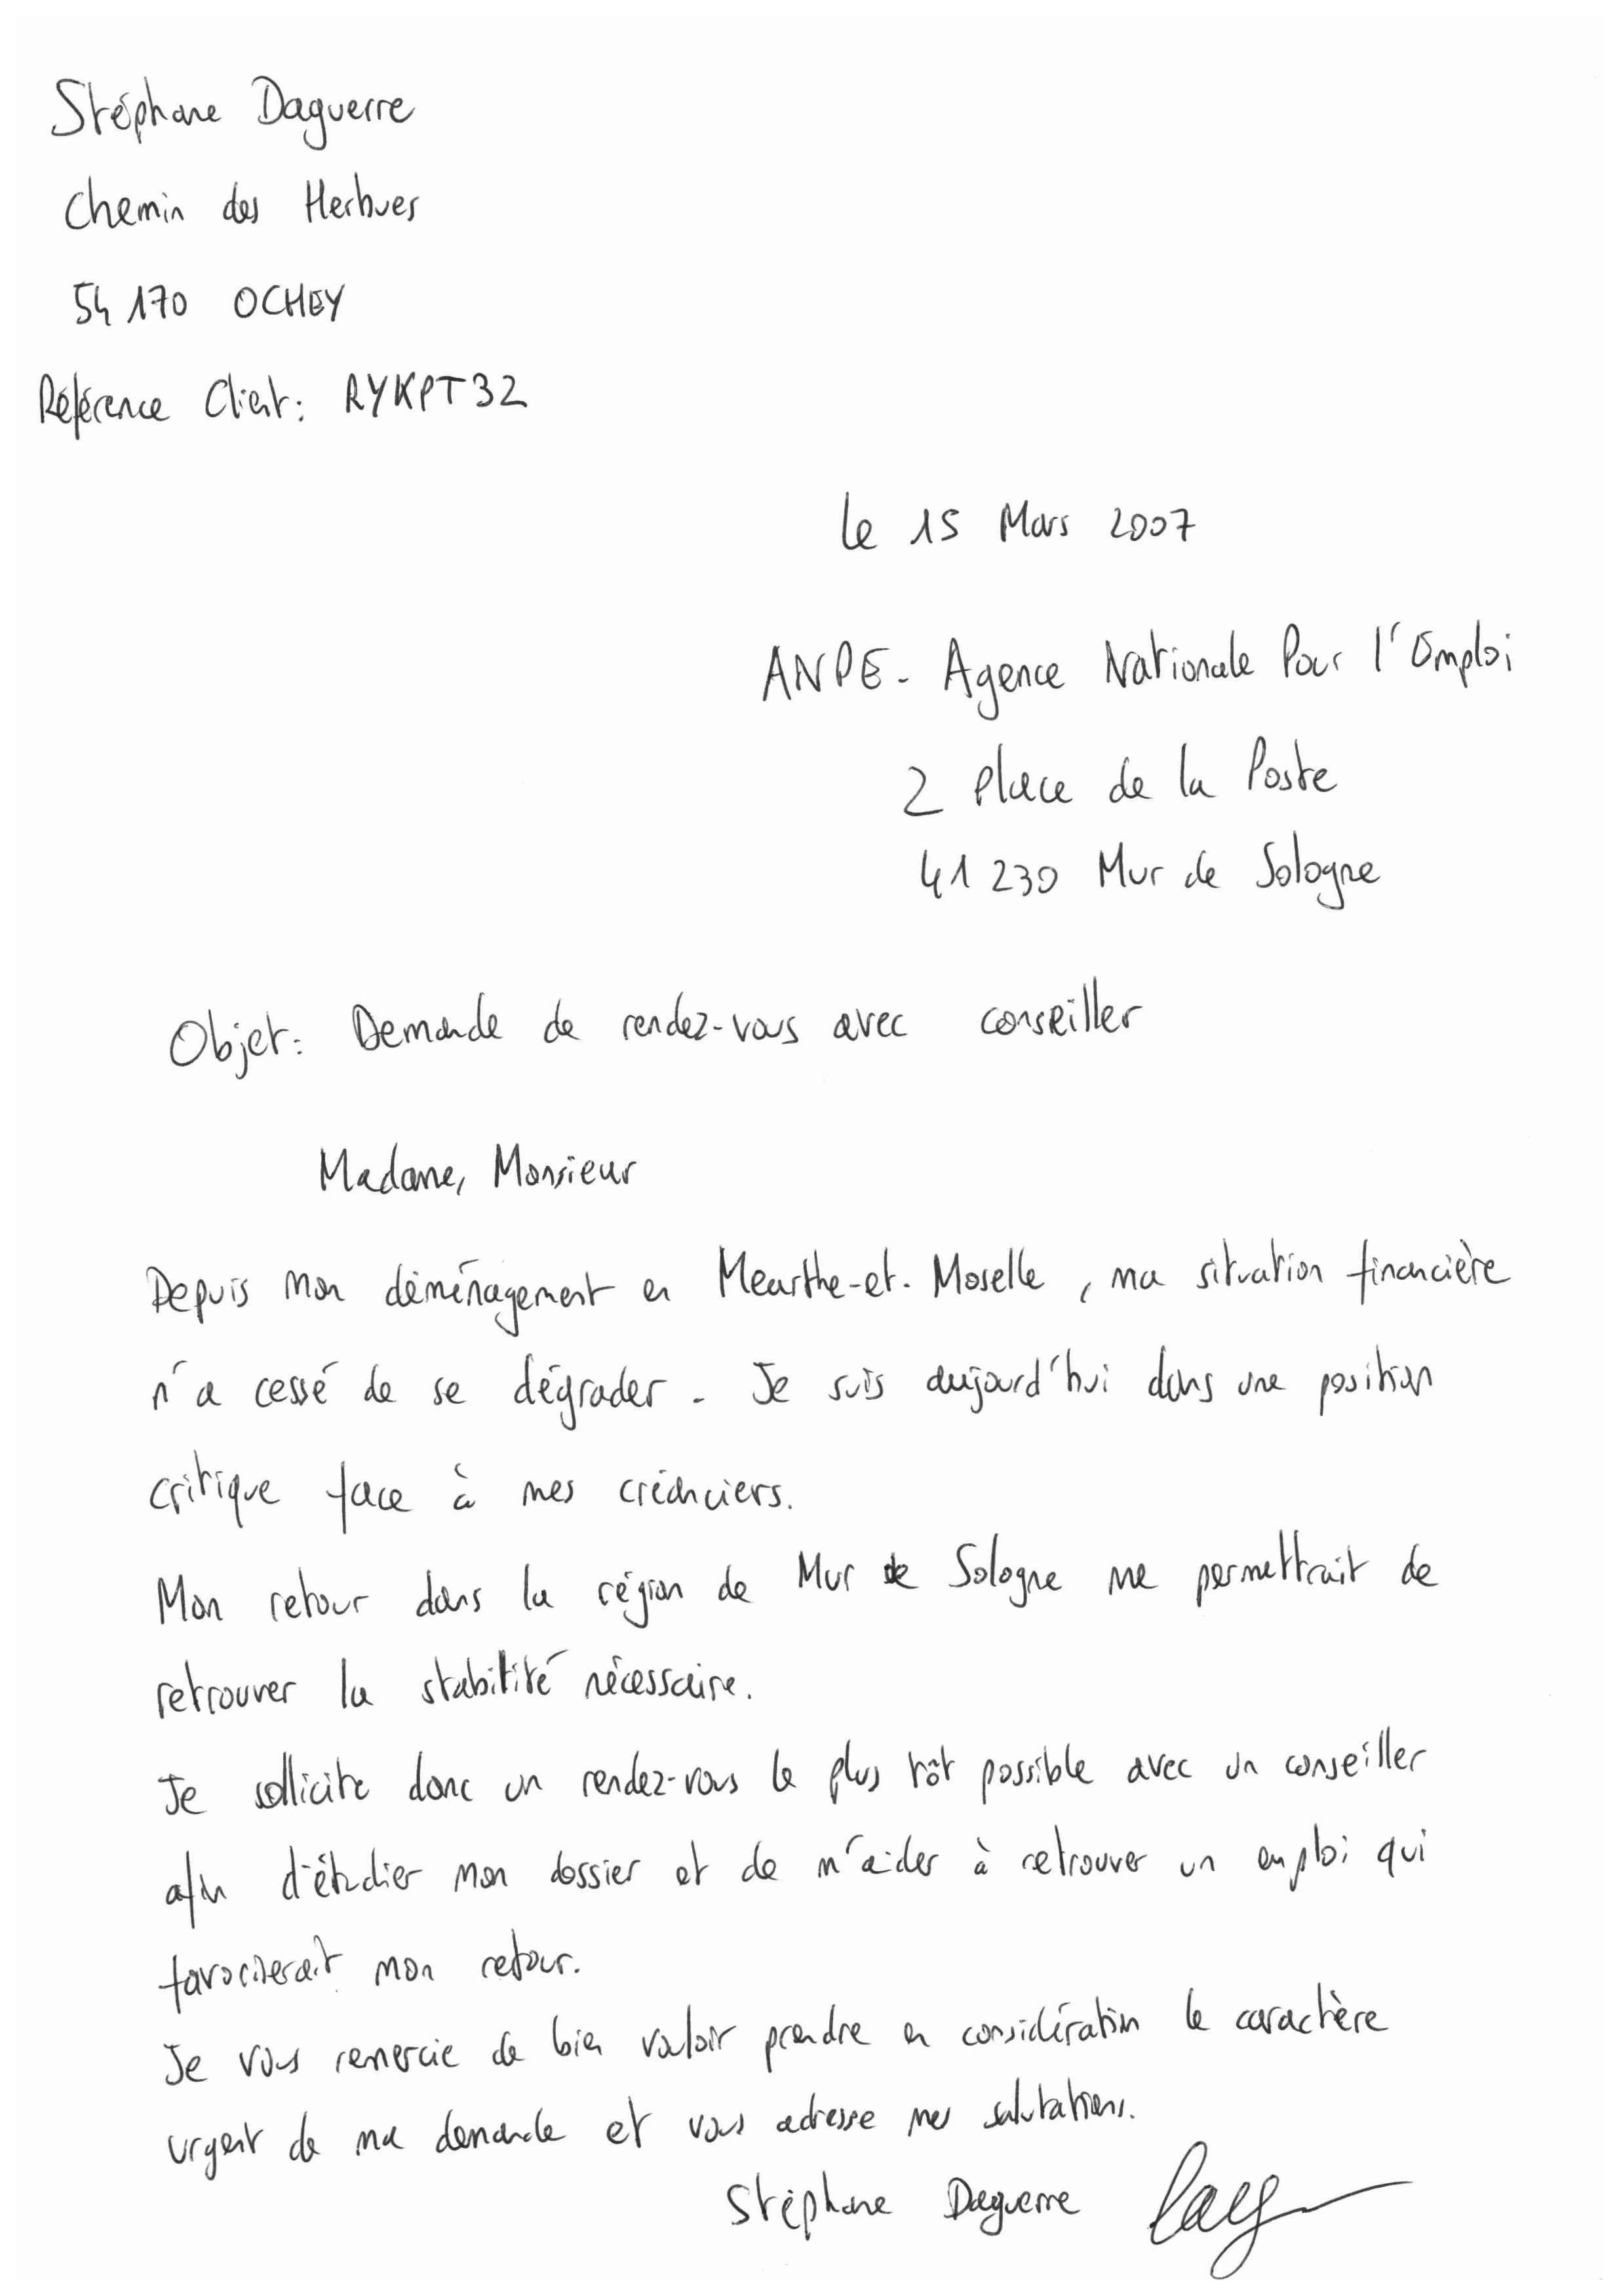 Stéphane Daguerre
Chemin des Herbues
54170 OCHEY
Référence Client: RYKPT32
le 15 Mars 2007
ANPE- Agence Nationale Pour l'Emploi
2 Place de la Poste
41230 Mur de Sologne
Objet: Demande de rendez-vous avec conseiller
Madame, Monsieur
Depuis mon déménagement en Meurthe-et-Moselle, ma situation financière
n'a cessé de se dégrader. Je suis aujourd'hui dans une position
critique face à mes créanciers.
Mon retour dans la région de Mur de Sologne me permettrait de
retrouver la stabilité nécessaire.
Je sollicite donc un rendez-vous le plus tôt possible avec un conseiller
afin d'étudier mon dossier et de m'aider à retrouver un emploi qui
favoriserait mon retour.
Je vous remercie de bien vouloir prendre en considération le caractère
urgent de ma demande et vous adresse mes salutations.
Stéphane Daguerre